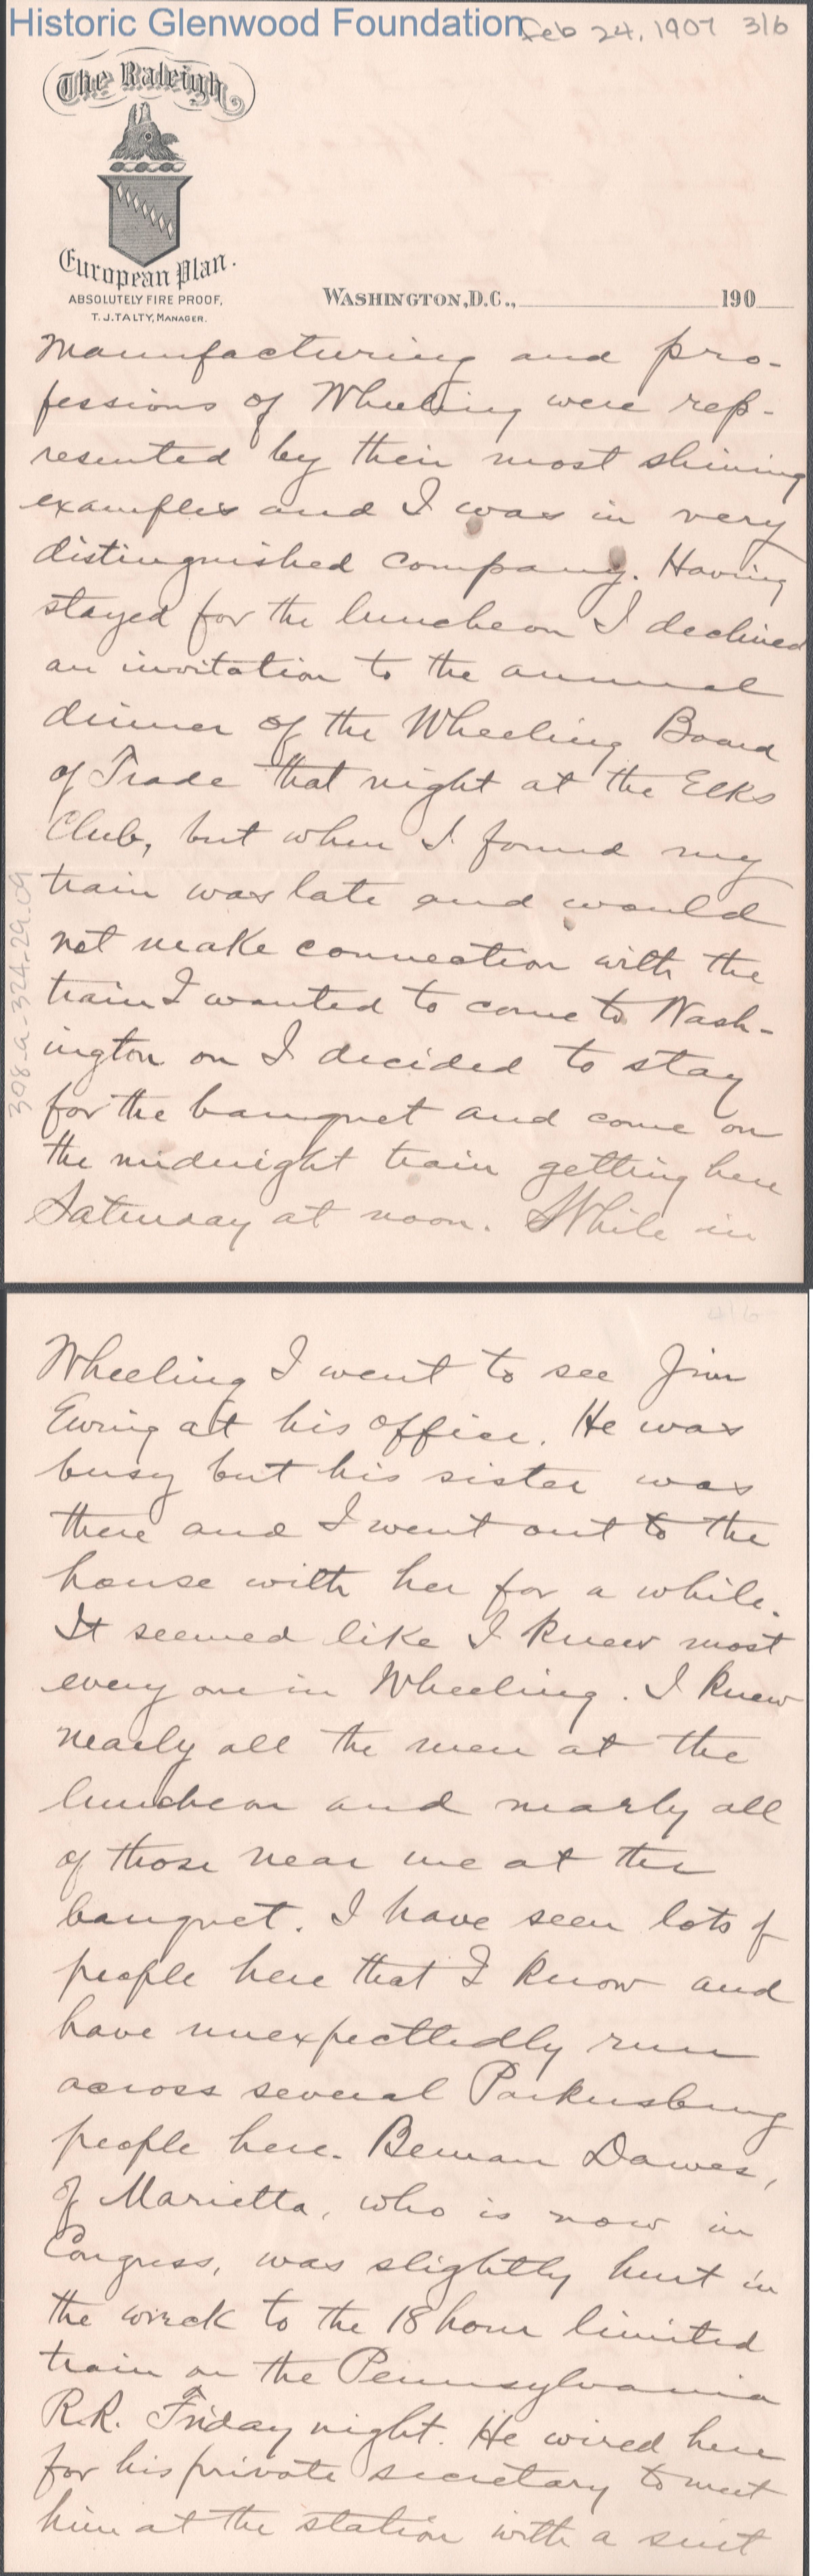 Historic Glenwood Foundation
Feb 24, 1907 3/6
The Raleigh,
European Plan.
ABSOLUTELY FIRE PROOF,
T. J. TALTY, MANAGER.
WASHINGTON, D.C., 190
Manufacturing and pro-
fessions of Wheeling were rep-
resented by their most shining
examples and I was in very
distinguished company. Having
stayed for the luncheon I declined
an invitation to the annual
dinner of the Wheeling Board
of Trade that night at the Elks
Club, but when I found my
train was late and would
not make connection with the
train I wanted to come to Wash-
ington on I decided to stay
for the banquet and come on
the midnight train getting here
Saturday at noon. While in
308-a-324-29.09
4/6
Wheeling I went to see Jim
Ewing at his office. He was
busy but his sister was
there and I went out to the
house with her for a while.
It seemed like I knew most
every one in Wheeling. I knew
nearly all the men at the
luncheon and nearly all
of those near me at the
banquet. I have seen lots of
people here that I know and
have unexpecttedly run
across several Parkersburg
people here. Beman Dawes,
of Marietta, who is now in
Congress, was slightly hurt in
the wreck to the 18 hour limited
train on the Pennsylvania
R.R. Friday night. He wired here
for his private secretary to meet
him at the station with a suit